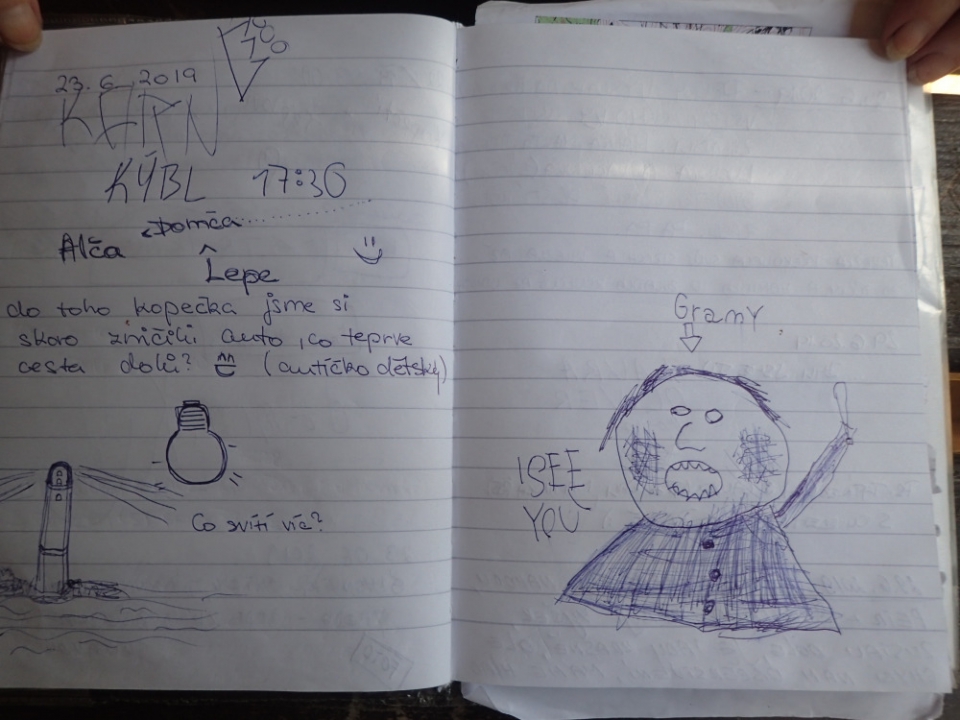 23.6.2019
KÝBL 17:36
Domča
Alča
Lepe
do toho kopečka jsme si
skoro zničili auto, co teprve
cesta dolů? (autíčko dětský)
Co svítí víc?
Gramy
I SEE
YOU